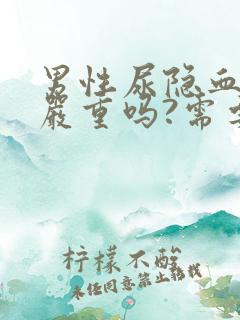 男性尿隐血
严重吗?需要
柠檬不酸
未经同意禁止转载